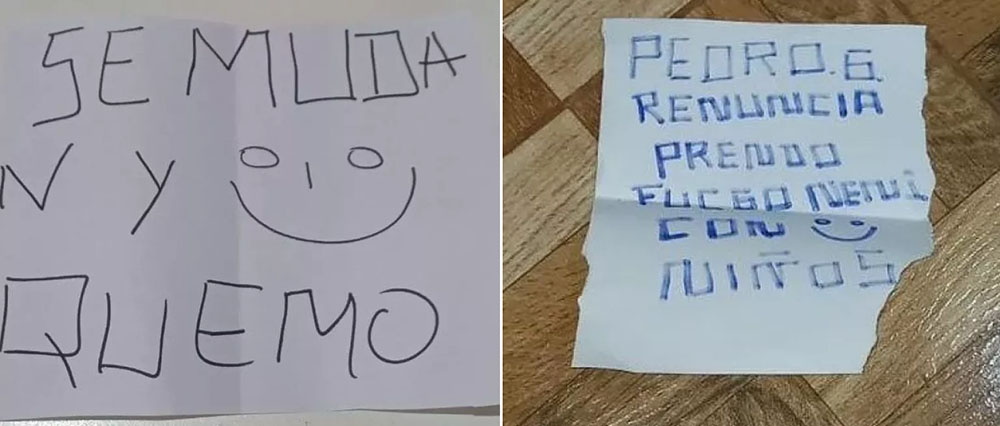 SE MUDA
N Y
QUEMO
PEDRO.G.
RENUNCIA
PRENDO
FUEGO NENUI
CON
NIÑOS